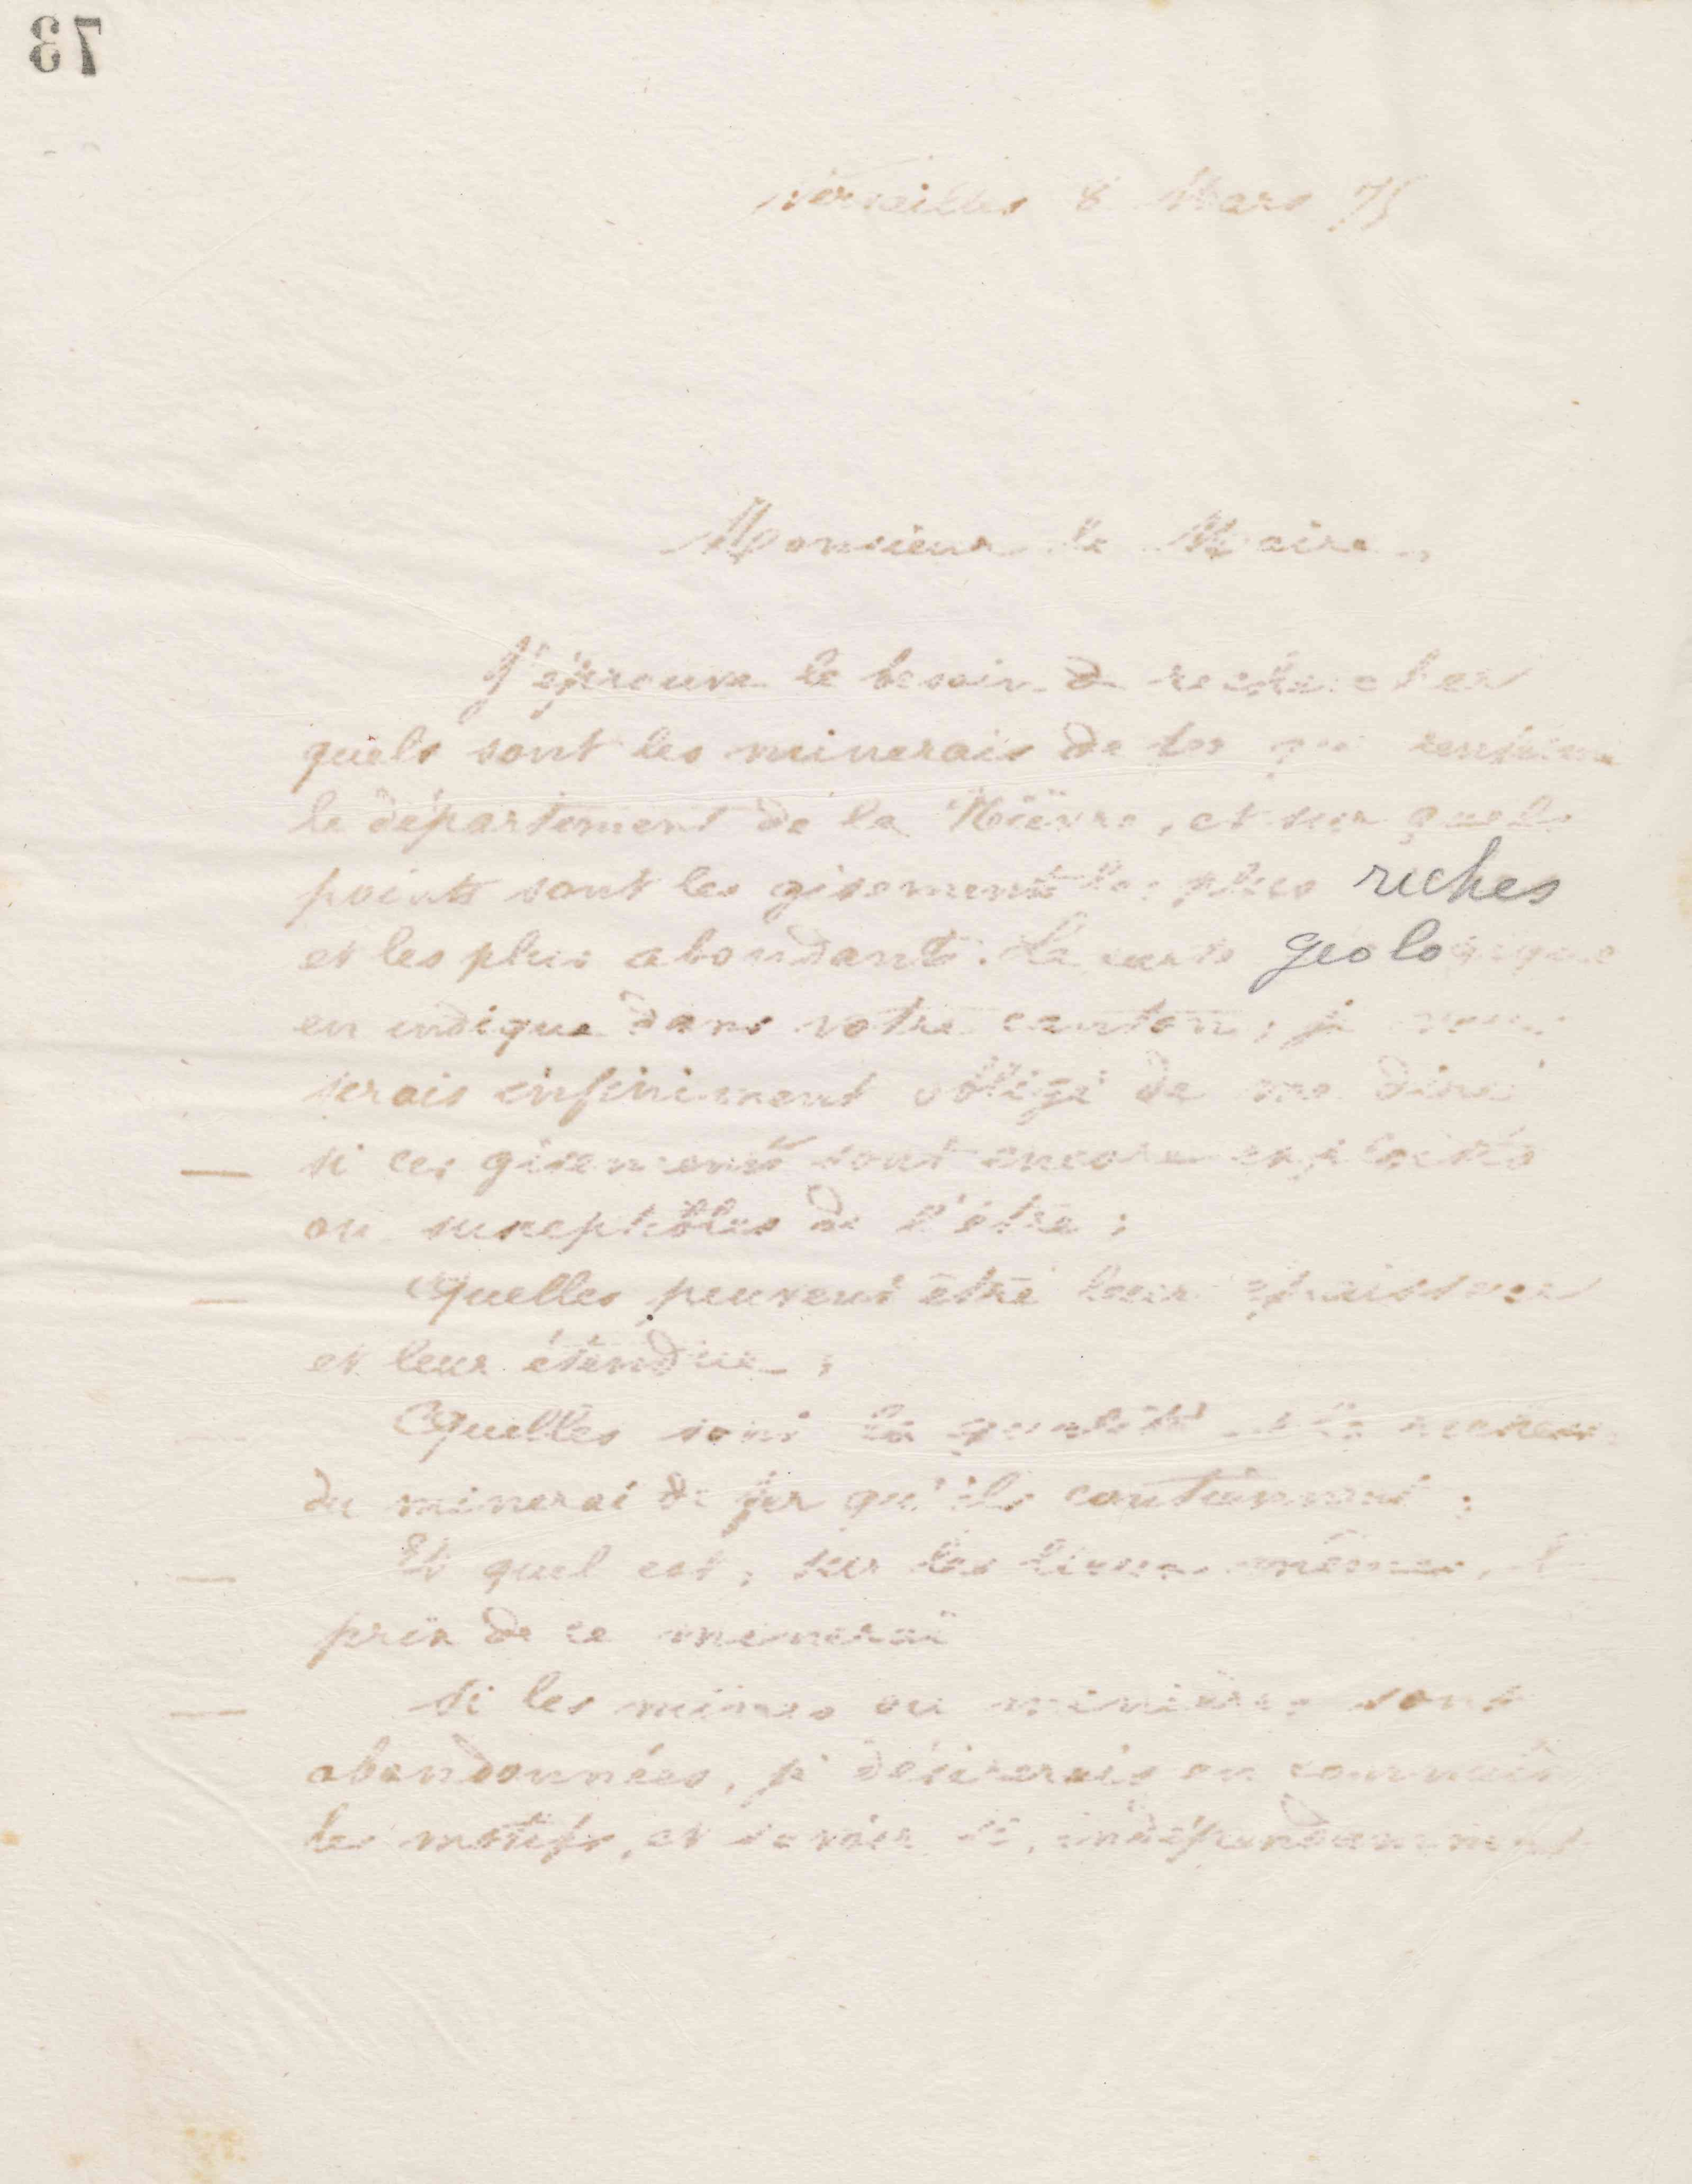 73
Versailles 8 Mars 75
Monsieur le Maire,
J'éprouve le besoin de rechercher
quels sont les minerais de fer que renferme
le département de la Nièvre, et sur quels
points sont les gisements les plus riches
et les plus abondants. La carte geologique
en indique dans votre canton ; je vous
serais infiniment obligé de me dire
— si ces gisements sont encore exploités
ou susceptibles de l'être ;
— Quelles peuvent être leur épaisseur
et leur étendue ;
— Quelles sont la qualité et la richesse
du minerai de fer qu'ils contiennent ;
— Et quel est, sur les lieux mêmes, le
prix de ce minerai
— Si les mines ou minières sont
abandonnées, je désirerais en connaître
les motifs, et savoir si, indépendamment